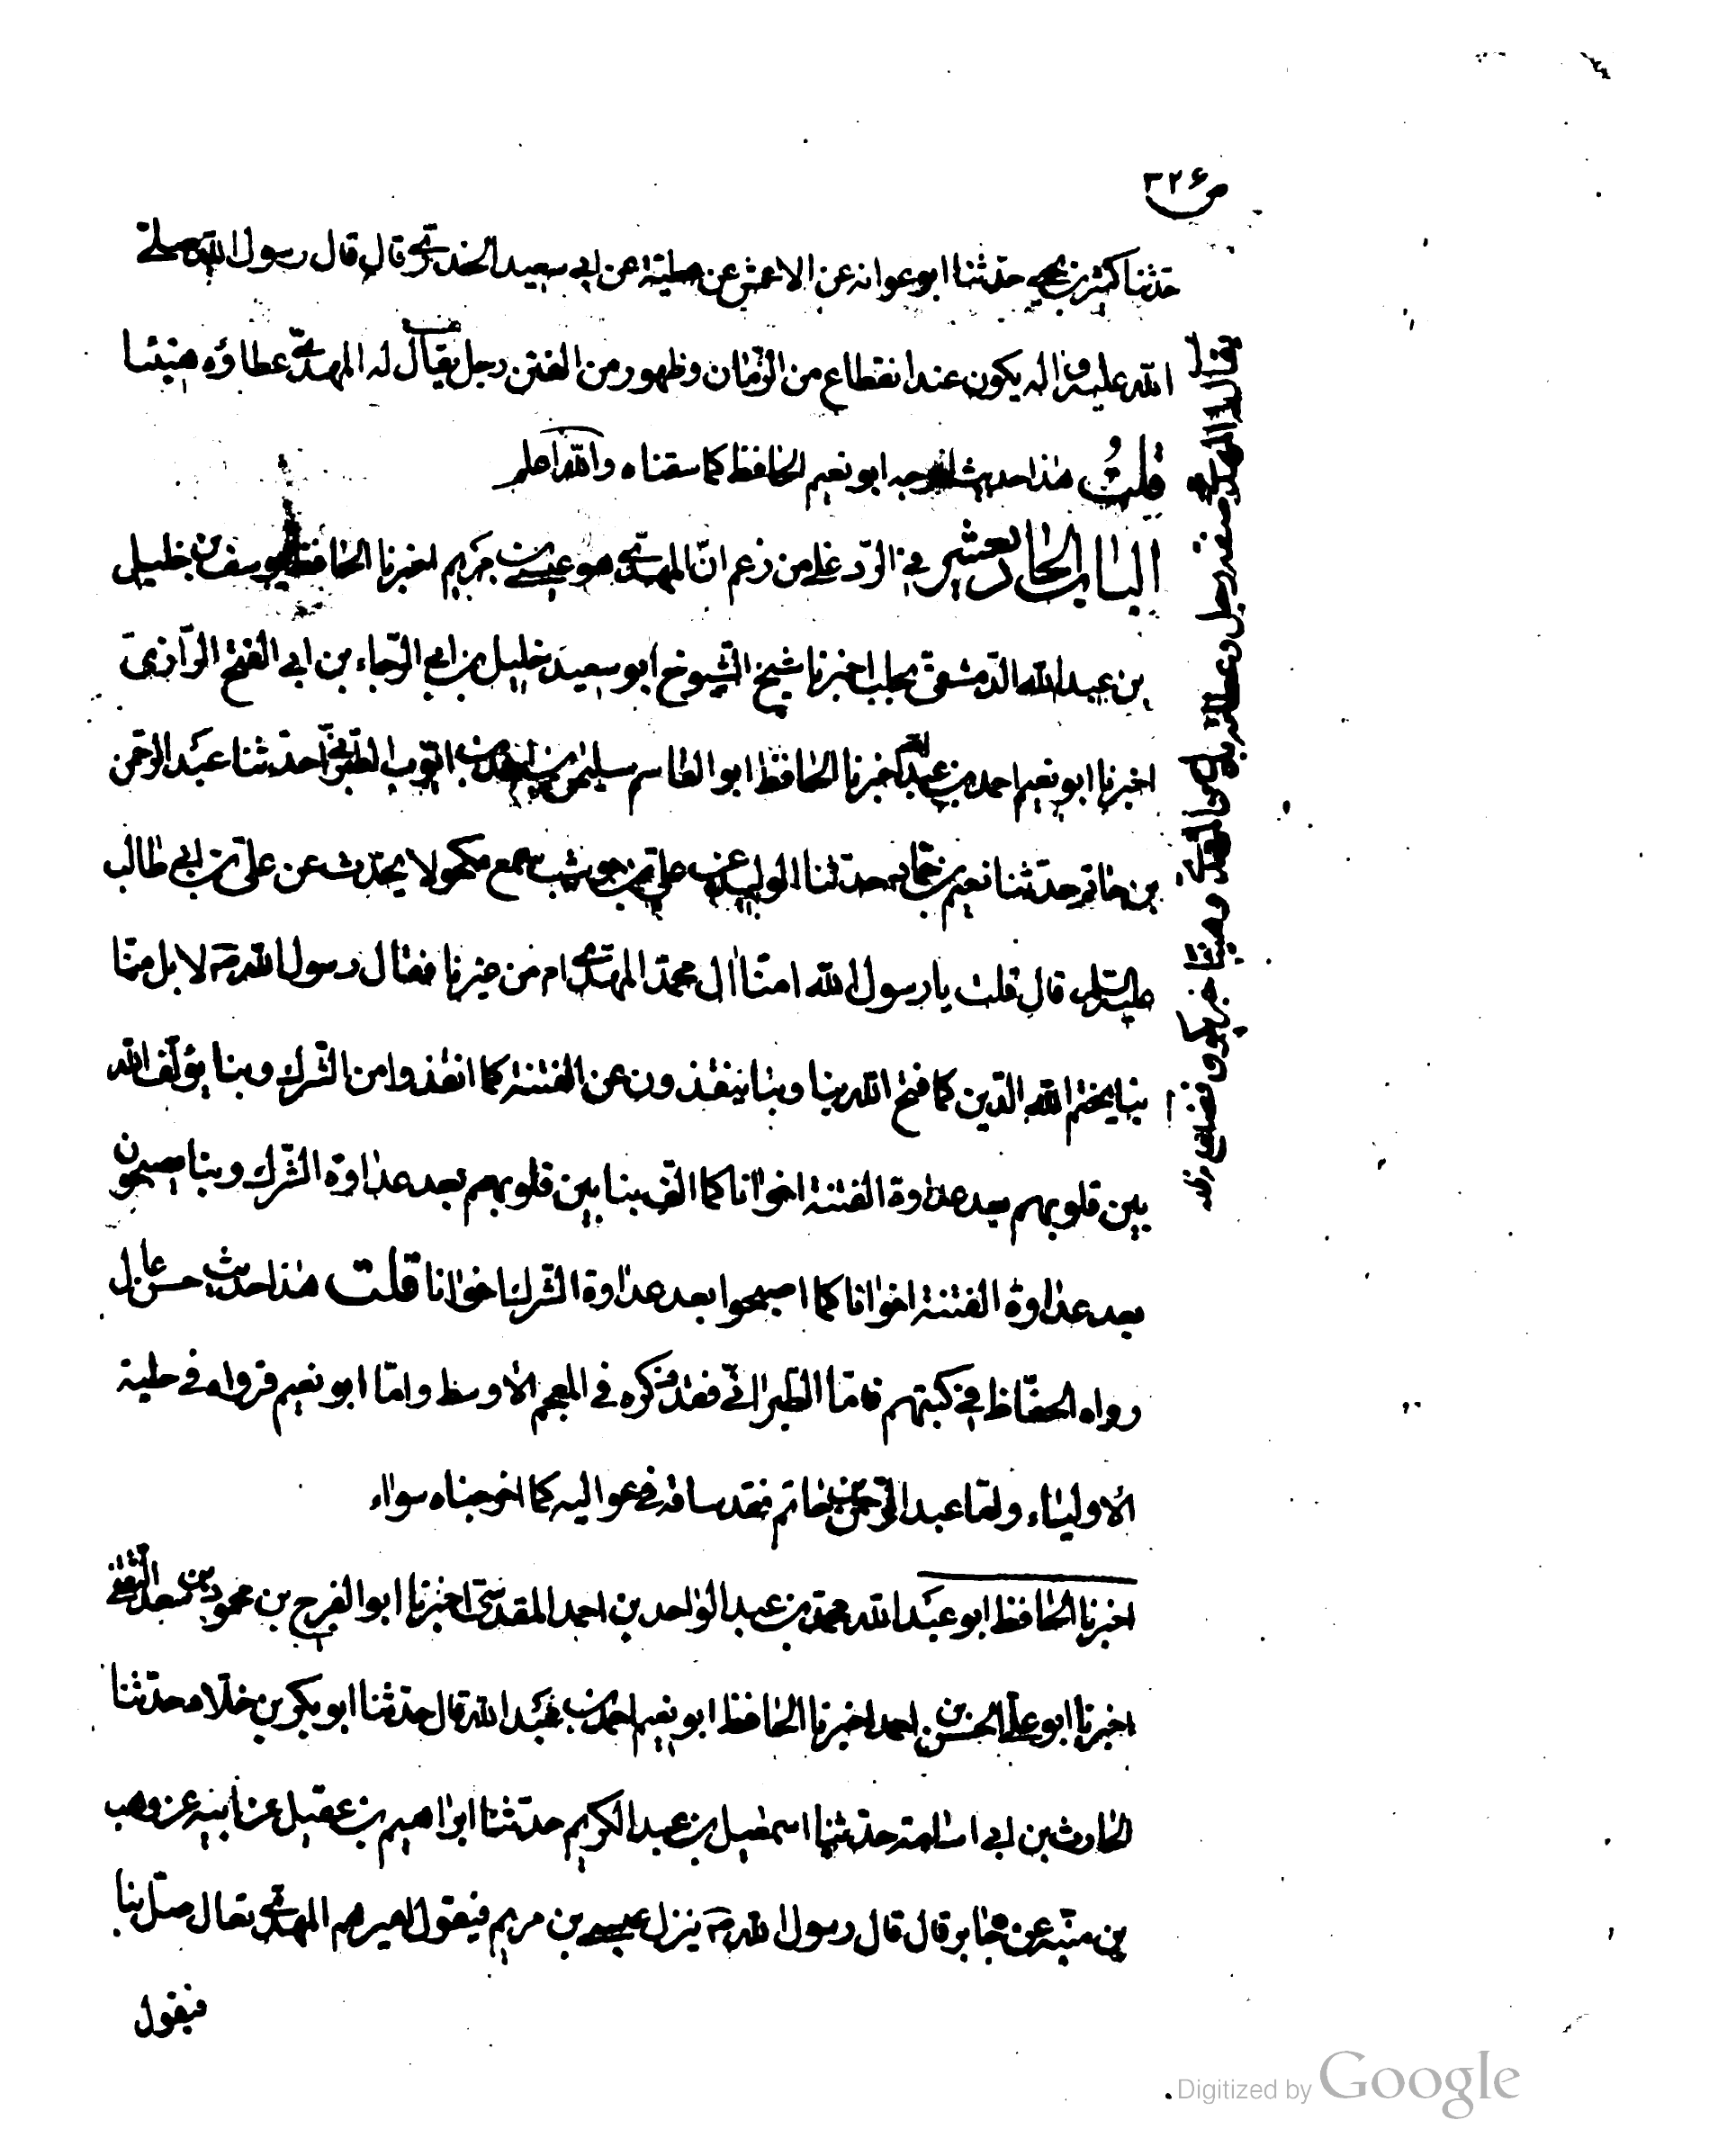 ص ٣٢٤
حدثنا كثير بن يحيى حدثنا ابو عوانه عن الاعمش عن عطية عن ابى سعيد الخدرى قال قال رسول الله صلى
الله عليه واله يكون عند انقطاع من الزمان وظهور من الفتن رجل يقال له المهدى عطاؤه هنيئا
قلت هذا حديث اخرجه ابو نعيم الحافظ كما سقناه والله اعلم
الباب الحاد يعشر فى الرد على من زعم ان المهدى هو عيسى بن مريم اخبرنا الحافظ يوسف بن خليل
بن عبد الله الدمشقى بحلب اخبرنا شيخ الشيوخ ابو سعيد خليل بن ابى الرجاء بن ابى الفتح الرازى
اخبرنا ابو نعيم احمد بن عبد الله اخبرنا الحافظ ابو القاسم سليمن بن احمد بن ايوب الطبرانى حدثنا عبد الرحمن
بن حاتم حدثنا نعيم بن حماد حدثنا الوليد عن على بن حوشب سمع مكحولا يحدث عن على بن ابى طالب
عليه السلم قال قلت يا رسول الله امنا ال محمد المهدى ام من غيرنا فقال رسول الله ص لا بل منا
بنا يختم الله الدين كما فتح الله بنا وبنا ينقذون عن الفتنة كما انقذوا من الشرك وبنا يؤلف الله
بين قلوبهم بعد عداوة الفتنة اخوانا كما الف بنا بين قلوبهم بعد عداوة الشرك وبنا يصبحون
بعد عداوة الفتنة اخوانا كما اصبحوا بعد عداوة الشرك اخوانا قلت هذا حديث حسن عال
رواه الحفاظ فى كتبهم فاما الطبرانى فقد ذكره فى المعجم الاوسط واما ابو نعيم فرواه فى حلية
الاولياء واما عبد الرحمن بن حاتم فقد ساقه فى عواليه كما اخرجناه سواء
اخبرنا الحافظ ابو عبد الله محمد بن عبد الواحد بن احمد المقدسى اخبرنا ابو الفرج بن محمود بن سعد الثقفى
اخبرنا ابو على الحسن بن احمد اخبرنا الحافظ ابو نعيم احمد بن عبد الله قال حدثنا ابو بكر بن خلاد حدثنا
الحارث بن ابى اسامة حدثنا اسمعيل بن عبد الكريم حدثنا ابراهيم بن عقيل عن ابيه عن وهب
بن منبه عن جابر قال قال رسول الله ص ينزل عيسى بن مريم فيقول اميرهم المهدى تعال صل بنا
فيقول
يقال له المهدى صفة رجل وعطاؤه
وهنيئا خبر يكون
Digitized by Google